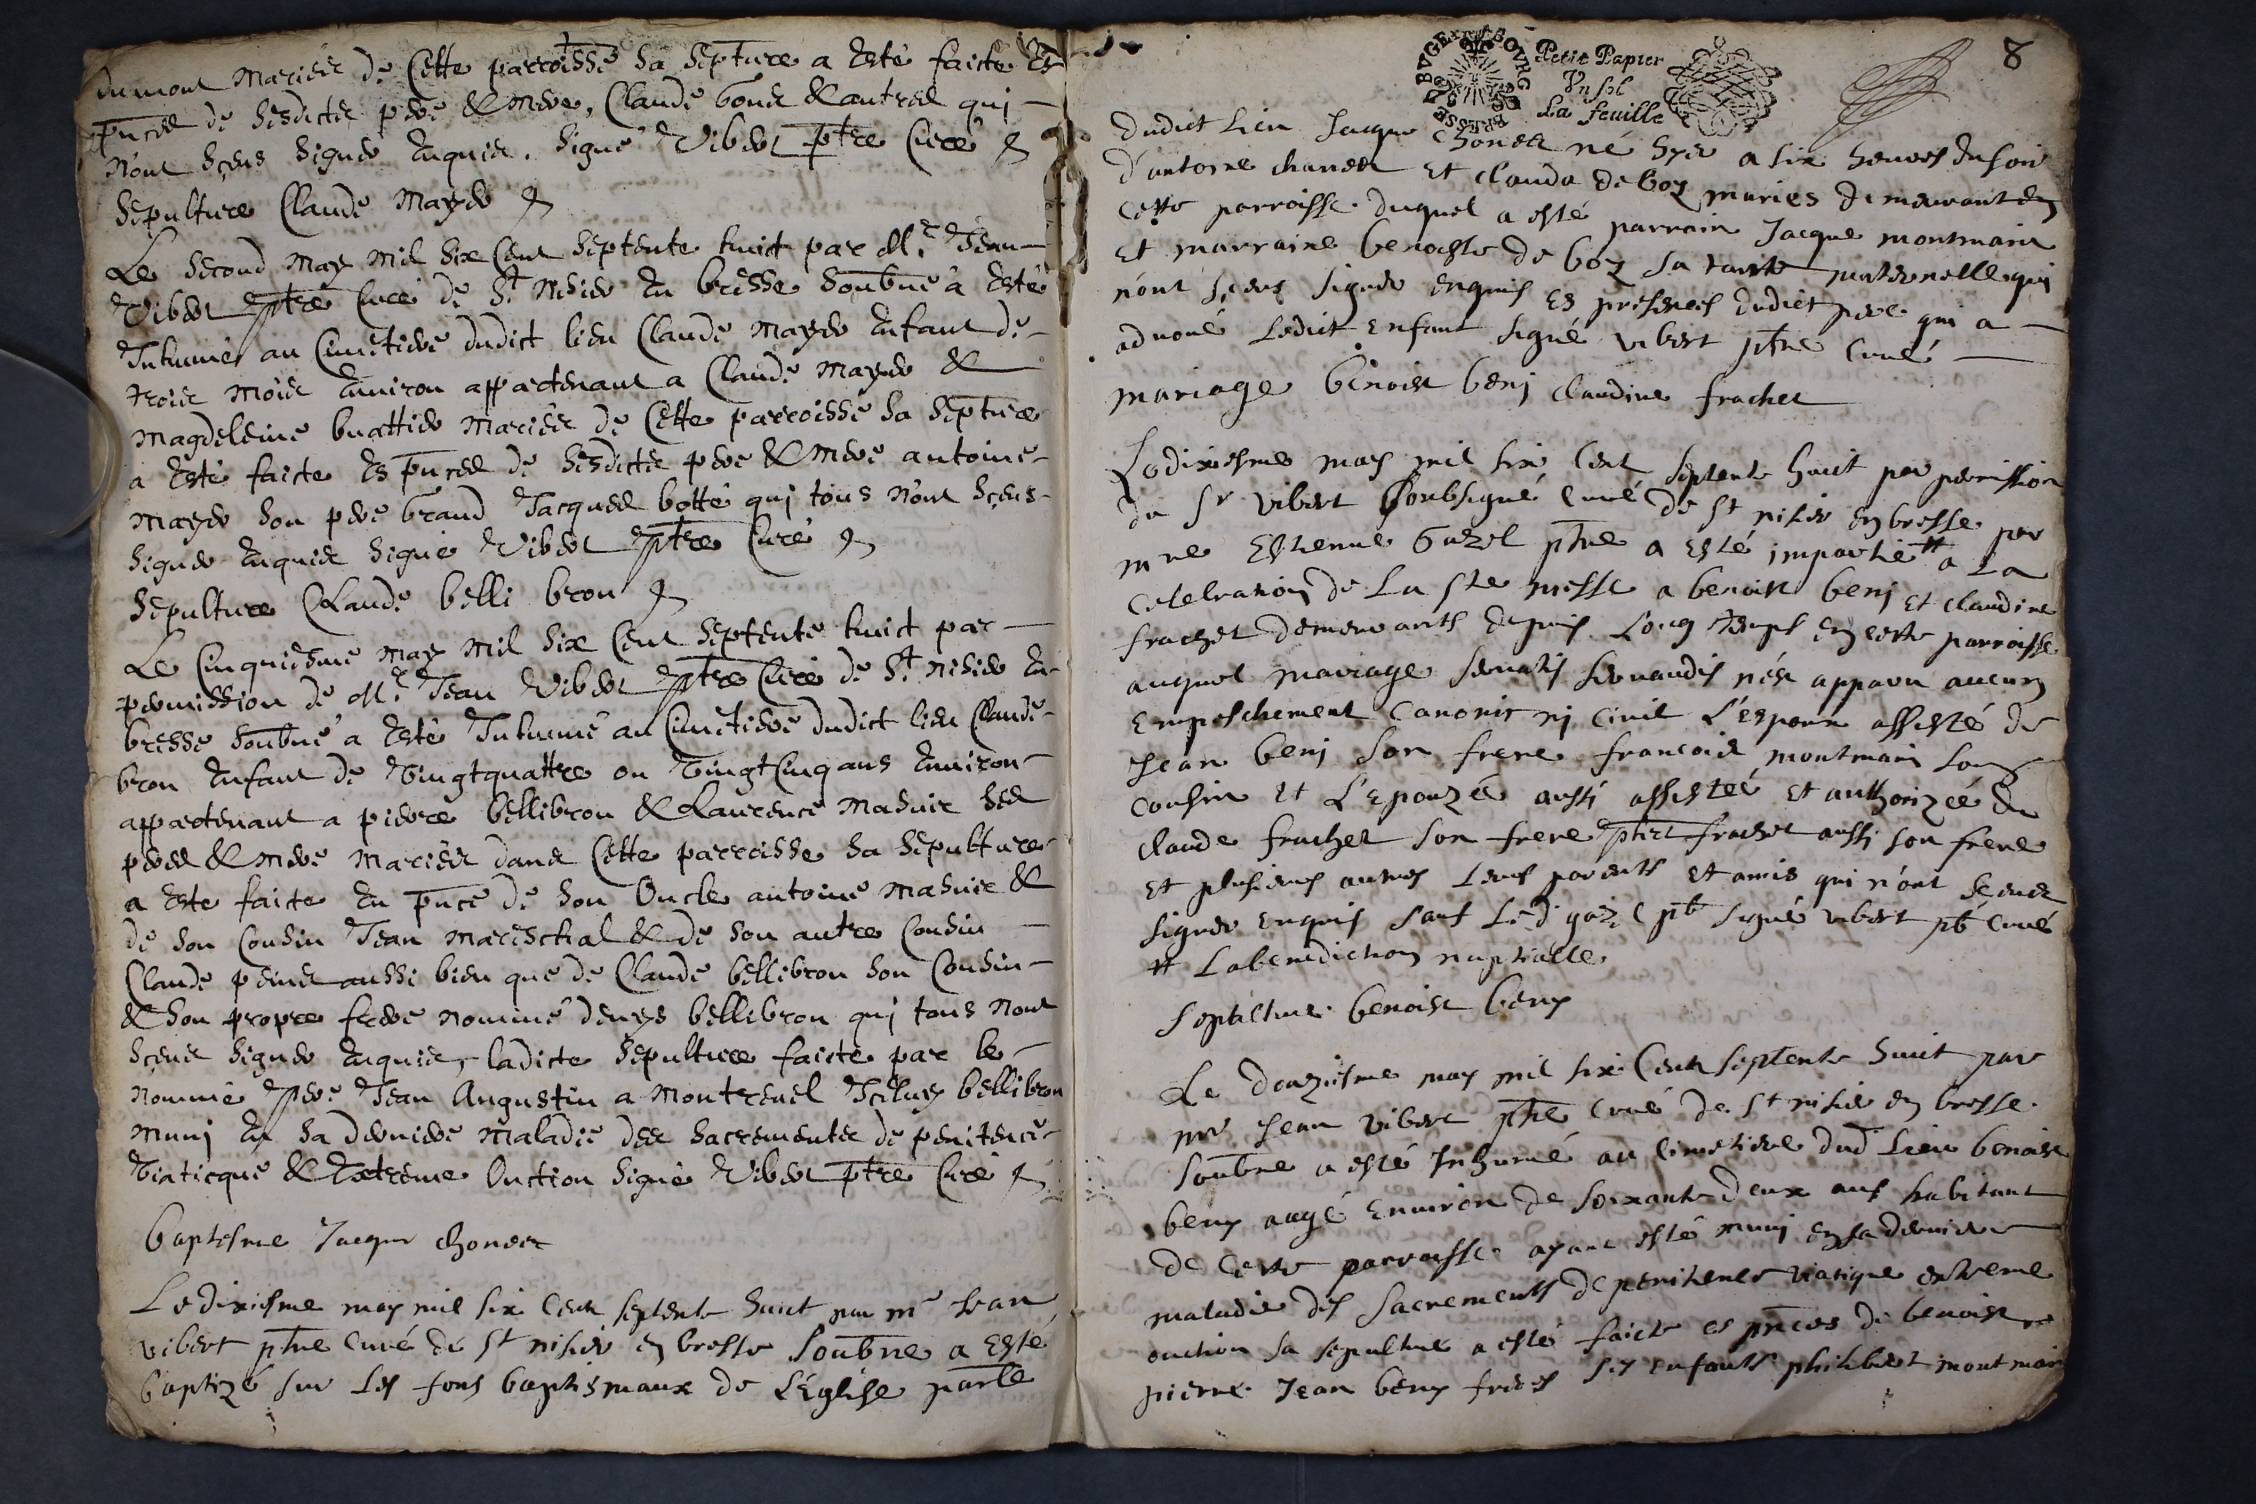 dumont Mariés de Cette parroisse sa sépture a Esté faicte Es
pnces de sesdictes pere & Mere, Claude bond & autres qui
n'ont sçeus signer Enquis. Signé Vibert ptre Curé
Sepulture Claude Mayer
Le second May Mil six Cent septente huict par Mre Jean
Vibert ptre Curé de St Nisier En bresse soubné a Esté
Inhumé au Cimetiere dudict lieu Claude Mayer Enfant de
trois mois Environ appartenant a Claude Mayer &
Magdeleine buattier Mariés de Cette parroisse sa sépture
a Esté faicte Es pnces de sesdicts pere & Mere antoine
Mayer son pere brand Jacques botté qui tous n'ont sçeus
signer Enquis signé Vibert ptre Curé
Sépulture Claude belli bron
Le Cinquiesme May Mil six Cent septente huict par
permission de Mre Jean Vibert ptre Curé de St Nisier En
bresse soubné a Esté Inhumé au Cimetiere dudict lieu Claude
bron Enfant de Vingtquattre ou Vingt Cinq ans Environ
appartenant a pierre bellibron & Laurence Masuir ses
peres & Mere Mariés dans Cette parroisse sa sépulture
a Este faicte En pnce de son Oncle antoine Masuir &
de son Cousin Jean Mareschal & de son autre Cousin
Claude aussi bien que de Claude bellibron son Cousin
& son propre frere nommé denys bellibron qui tous nont
sçeus signer Enquis, ladicte sépulture faicte par le
nommé Pere Jean Augustin a Montrevel Iceluy bellibron
muni En sa derniere Maladie des sacrements de penitence
Viaticque & Extreme Onction signé Vibert ptre Curé
baptesme Jacque chonet
Le dixiesme may mil six Cent septente huict par mre Jean
vibert ptre curé de St nisier en bresse soubne a Esté
baptizé sur les fons baptismaux de L'Eglise parlle
8
BVGEY BOVRG BRESSE
Petit Papier
Vn sol
La feuille
dudict Lieu Jacque Chonet né hyer a six heures du soir
d'antoine chanet Et Clauda de boz maries demeurant en
cette parroisse. duquel a esté parrain Jacque montmain
Et marraine benoiste de boz sa tante maternelle qui
n'ont sçeus signer enquis Es presences dudict pere qui a
advoué Ledict Enfant signé vibert ptre curé
mariage benoist beni Claudine frachet
Le dixiesme may mil six Cent septente huict par permission
du Sr vibert soubsigné curé de St nisier en bresse. par
mre Estienne Gazel ptre a Esté impartie # a La
celebration de La Ste messe a benoist beni Et claudine
frachet demeurants depuis Long temps en cette parroisse.
auquel mariage servatis servandis n'est apparu aucun
Empeschement canonic ni civil L'espoux assisté de
Jean beni son frere francois montmain son
cousin Et L'epouzée aussi assistée Et authorizée du
claude frachet son frere frachet aussi son frere
Et plusieurs autres Leurs parents Et amis qui n'ont sceus
signer enquis sauf Led gazel ptre signé vibert ptre curé
# La benediction nuptialle.
Sepulture. benoist beny
Le douziesme may mil six Cent septente huict par
mre Jean vibert ptre curé de St nisier en bresse.
soubne a esté Inhumé au Cimetiere dud Lieu benoist
beny aagé Environ de soixante deux ans habitant
de Cette parroisse. ayant esté muni en sa derniere
maladie des sacrements de penitence viatique extreme
onction sa sepulture a esté faicte es pnces de benoist
pierre. Jean beny freres ses enfants philibert montmain